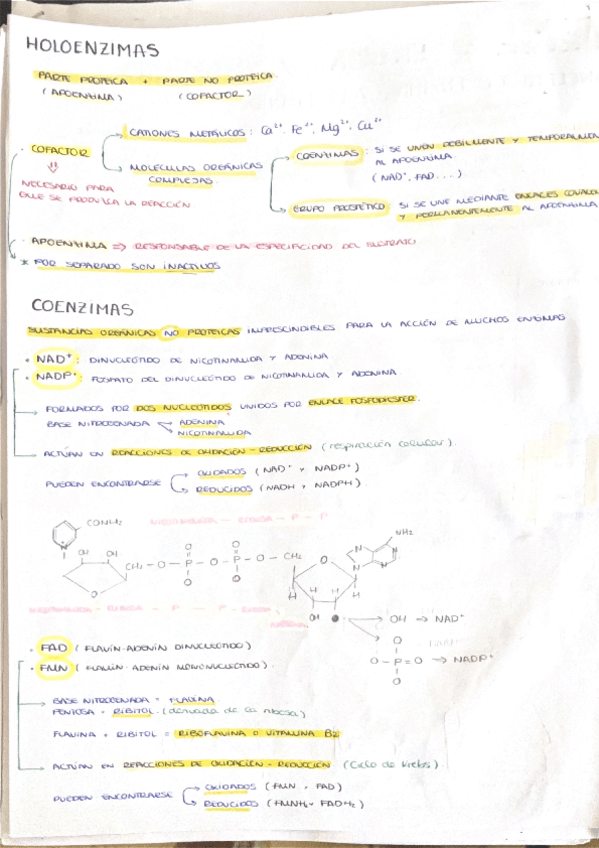 HOLOENZIMAS
PARTE PROTEICA + PARTE NO PROTEICA
(APOENZIMA) (COFACTOR)
CATIONES METÁLICOS: Ca²⁺, Fe²⁺, Mg²⁺, Cu²⁺
COFACTOR
MOLÉCULAS ORGÁNICAS
COMPLEJAS
NECESARIO PARA
QUE SE PRODUZCA LA REACCIÓN
COENZIMAS: SI SE UNEN DEBILMENTE Y
AL APOENZIMA.
(NAD⁺, FAD...)
GRUPO PROSTÉTICO: SI SE UNE MEDIANTE ENLACES
Y PERMANENTEMENTE AL APOENZIMA
APOENZIMA => RESPONSABLE DE LA ESPECIFICIDAD DEL SUSTRATO
* POR SEPARADO SON INACTIVOS
COENZIMAS
SUSTANCIAS ORGÁNICAS NO PROTEICAS IMPRESCINDIBLES PARA LA ACCIÓN DE MUCHOS ENZIMAS
• NAD⁺: DINUCLEÓTIDO DE NICOTINAMIDA Y ADENINA
• NADP⁺: FOSFATO DEL DINUCLEÓTIDO DE NICOTINAMIDA Y ADENINA
→ FORMADOS POR DOS NUCLEÓTIDOS UNIDOS POR ENLACE FOSFODIESTER.
BASE NITROGENADA ADENINA
NICOTINAMIDA
→ ACTÚAN EN REACCIONES DE OXIDACIÓN-REDUCCIÓN (respiración celular).
PUEDEN ENCONTRARSE OXIDADOS (NAD⁺ Y NADP⁺)
REDUCIDOS (NADH Y NADPH).
CONH₂
NH₂
N
OH OH
CH₂-O-P-O-P-O-CH₂
O
H H H H
OH → OH → NAD⁺
O
O-P=O → NADP⁺
O
• FAD (FLAVÍN-ADENÍN DINUCLEÓTIDO)
• FMN (FLAVÍN-ADENÍN MONONUCLEÓTIDO).
→ BASE NITROGENADA = FLAVINA
PENTOSA = RIBITOL. (derivada de la ribosa)
FLAVINA + RIBITOL = RIBOFLAVINA O VITAMINA B2
→ ACTÚAN EN REACCIONES DE OXIDACIÓN-REDUCCIÓN (Ciclo de Krebs)
PUEDEN ENCONTRARSE OXIDADOS (FMN, FAD)
REDUCIDOS (FMNH₂ Y FADH₂)